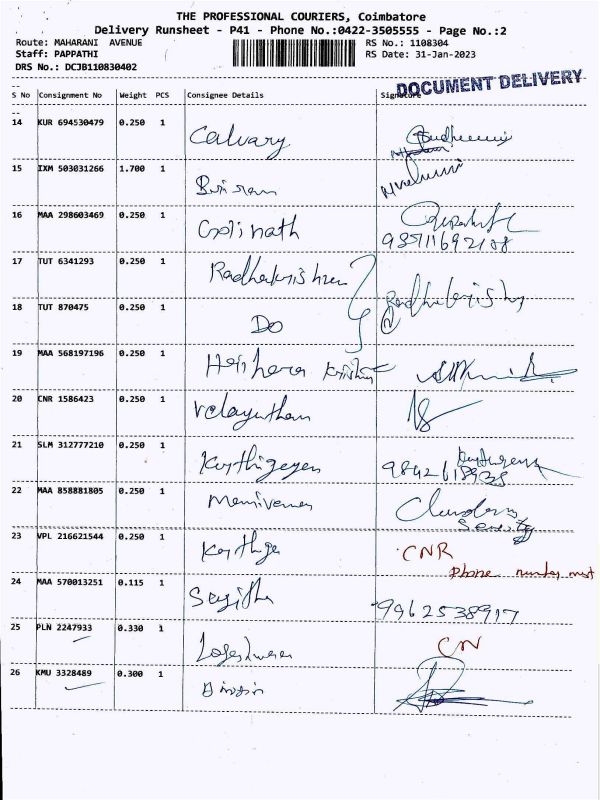 THE PROFESSIONAL COURIERS, Coimbatore
Delivery Runsheet - P41 - Phone No.:0422-3505555 - Page No.:2
Route: MAHARANI AVENUE RS No.: 1108304
Staff: PAPPATHI RS Date: 31-Jan-2023
DRS No.: DCJB110830402
DOCUMENT DELIVERY
S No Consignment No Weight PCS Consignee Details Signature
14 KUR 694530479 0.250 1 Calvary
15 IXM 503031266 1.700 1
16 MAA 298603469 0.250 1 Gopinath
17 TUT 6341293 0.250 1 Radhakrishnan
18 TUT 870475 0.250 1 Do
19 MAA 568197196 0.250 1 Harihara Krishnan
20 CNR 1586423 0.250 1 Velayutham
21 SLM 312777210 0.250 1 Karthigeyen
22 MAA 858881805 0.250 1
23 VPL 216621544 0.250 1 CNR
Phone number must
24 MAA 570013251 0.115 1 9962538917
25 PLN 2247933 0.330 1 CN
26 KMU 3328489 0.300 1